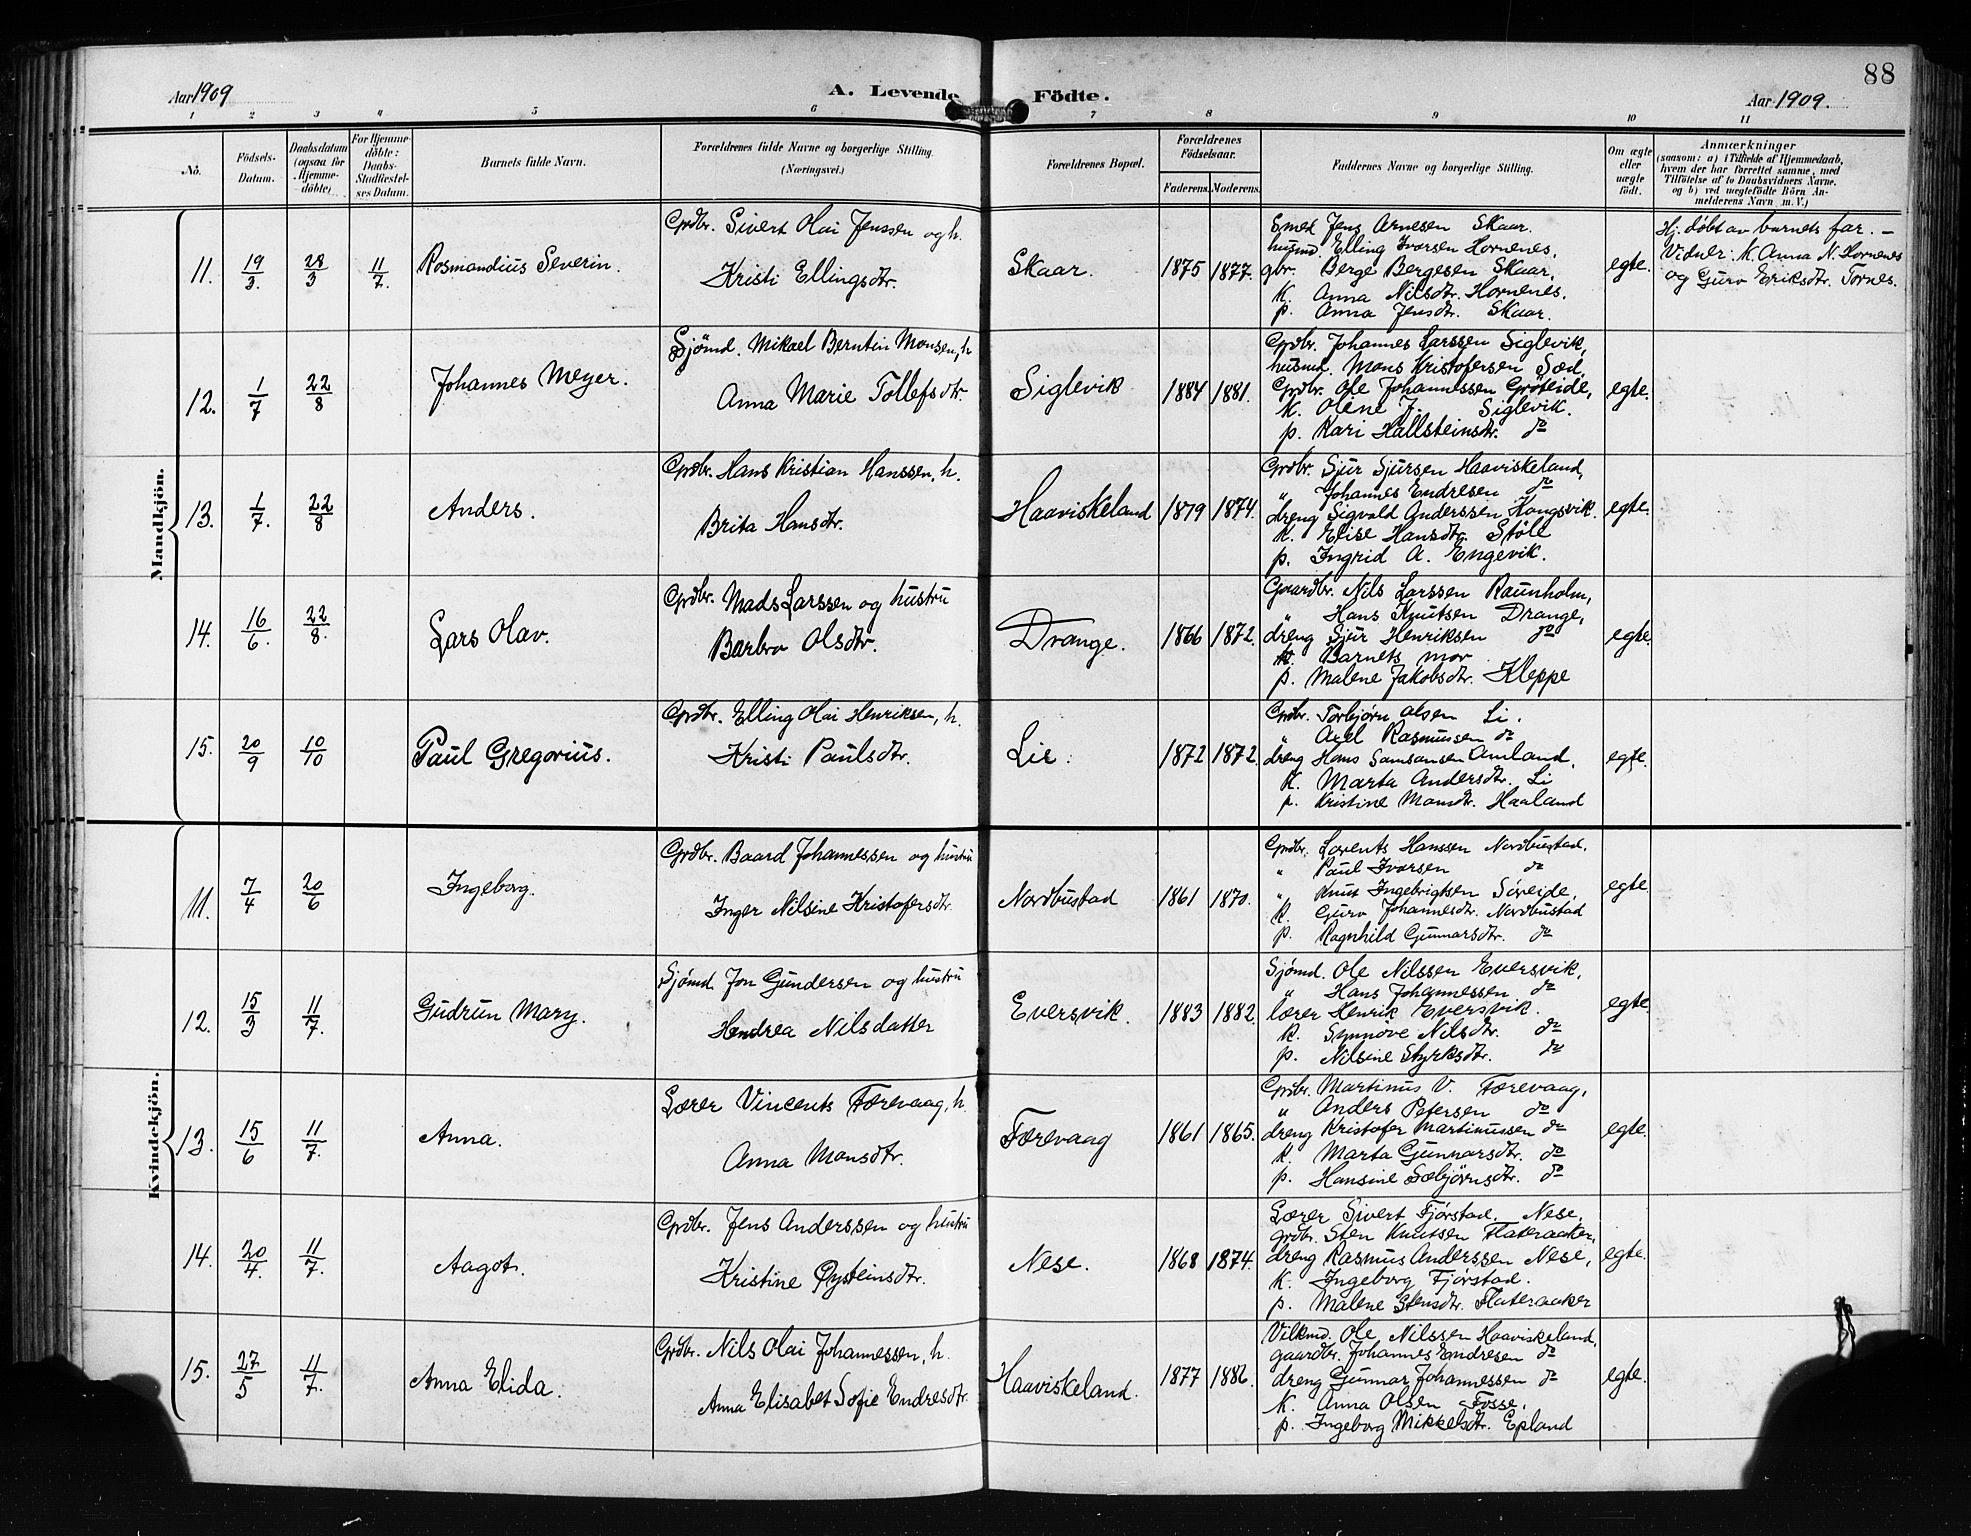 88
Aar 1909
A. Levende Födte.
Aar 1909.
1 2 3 4 5 6 7 8 9 10 11
No.
Födsels-
Datum.
Daabsdatum
(ogsaa for
Hjemme-
döbte)
For Hjemme-
döbte:
Daabs-
Stadfæstel-
ses Datum.
Barnets fulde Navn.
Forældrenes fulde Navne og borgerlige Stilling
(Næringsvei.)
Forældrenes Bopæl.
Forældrenes
Födselsaar.
Faderens. Moderens.
Faddernes Navne og borgerlige Stilling.
Om ægte
eller
uægte
födt.
Anmærkninger
(saasom: a) i Tilfælde af Hjemmedaab,
hvem der har forrettet samme, med
Tilföielse af to Daabsvidners Navne,
og b) ved uegtefödte Börn An-
melderens Navn m. V.)
Mandkjön.
11. 19/3. 28/3 11/7.
Rosmandius Severin.
Grdbr. Sivert Olai Jenssen og h.
Kristi Ellingsdtr.
Skaar. 1875 1877.
Smed Jens Arnesen Skaar.
husmd. Elling Ivarsen Hornenes.
gbr. Berge Bergesen Skaar,
k. Anna Nilsdtr. Hornenes.
p. Anna Jensdtr. Skaar.
egte.
Hj. döbt av barnets far. –
Vidner: K. Anna N. Hornenes
og Guro Eriksdtr. Tornes.
12. 1/7 22/8
Johannes Meyer.
Sjömd. Mikael Berntin Monsen, h
Anna Marie Tollefsdtr
Siglevik 1884 1881.
Grdbr. Johannes Larssen Siglevik,
husmd. Mons Kristofersen Sæd,
Grdbr. Ole Johannessen Gröteide,
k. Oline J. Siglevik.
p. Kari Hallsteinsdtr. do
egte.
13. 1/7. 22/8
Anders.
Grdbr. Hans Kristian Hanssen, h.
Brita Hansdtr.
Haaviskeland 1879 1874.
Grdbr. Sjur Sjursen Haaviskeland,
" Johannes Endresen do
dreng Sigvald Anderssen Kongsvik.
k. Elise Hansdtr. Stöle
p. Ingrid A. Engevik.
egte.
14. 16/6. 22/8.
Lars Olav.
Grdbr. Mads Larssen og hustru
Barbro Olsdtr.
Drange. 1866 1872.
Gaardbr. Nils Larssen Raunholm,
" Hans Knutsen Drange,
dreng Sjur Henriksen do
k. Barnets mor
p. Malene Jakobsdtr. Kleppe
egte.
15. 20/9 10/10
Paul Gregorius.
Grdbr. Elling Olai Henriksen, h.
Kristi Paulsdtr.
Lie. 1872 1872.
Grdbr. Torbjörn Olsen Li.
" Axel Rasmussen do
dreng Hans Samsonsen Amland.
k. Marta Andersdtr. Li
p. Kristine Monsdtr. Haaland
egte.
Kvindekjön.
11. 7/4 20/6
Ingeborg.
Grdbr. Baard Johannessen og hustru
Inger Nilsine Kristofersdtr.
Nordbustad 1861 1870.
Grdbr. Lorents Hanssen Nordbustad,
" Paul Ivarsen do
" Knut Ingebrigtsen Söreide,
k. Guro Johannesdtr. Nordbustad
p. Ragnhild Gunnarsdtr. do
egte.
12. 15/3 11/7.
Gudrun Mary.
Sjömd. Jon Gundersen og hustru
Hendrea Nilsdatter
Eversvik. 1883 1882.
Sjömd. Ole Nilssen Eversvik,
" Hans Johannessen do
lærer Henrik Eversvik.
k. Synnöve Nilsdtr. do
p. Nilsine Styrksdtr. do
egte.
13. 15/6 11/7.
Anna.
Lærer Vincents Færevaag, h.
Anna Monsdtr.
Færevaag 1861 1865.
Grdbr. Martinus V. Færevaag,
" Anders Petersen do
dreng Kristofer Martinussen do
k. Marta Gunnarsdtr. do
p. Hansine Sæbjörnsdtr. do
egte.
14. 20/4. 11/7.
Aagot.
Grdbr. Jens Anderssen og hustru
Kristine Øysteinsdtr.
Nese. 1868 1874.
Lærer Sivert Fjörstad, Nese,
grdbr. Sten Knutsen Flateraaker,
dreng Rasmus Anderssen Nese,
k. Ingeborg Fjörstad.
p. Malene Stensdtr. Flateraaker
egte.
15. 27/5 11/7.
Anna Elida.
Grdbr. Nils Olai Johannessen, h.
Anna Elisabet Sofie Endresdtr.
Haaviskeland. 1877 1886.
Ole Nilssen Haaviskeland,
gaardbr. Johannes Endresen do
dreng Gunnar Johannessen do
k. Anna Olsen Fosse,
p. Ingeborg Mikkelsdtr. Epland
egte.